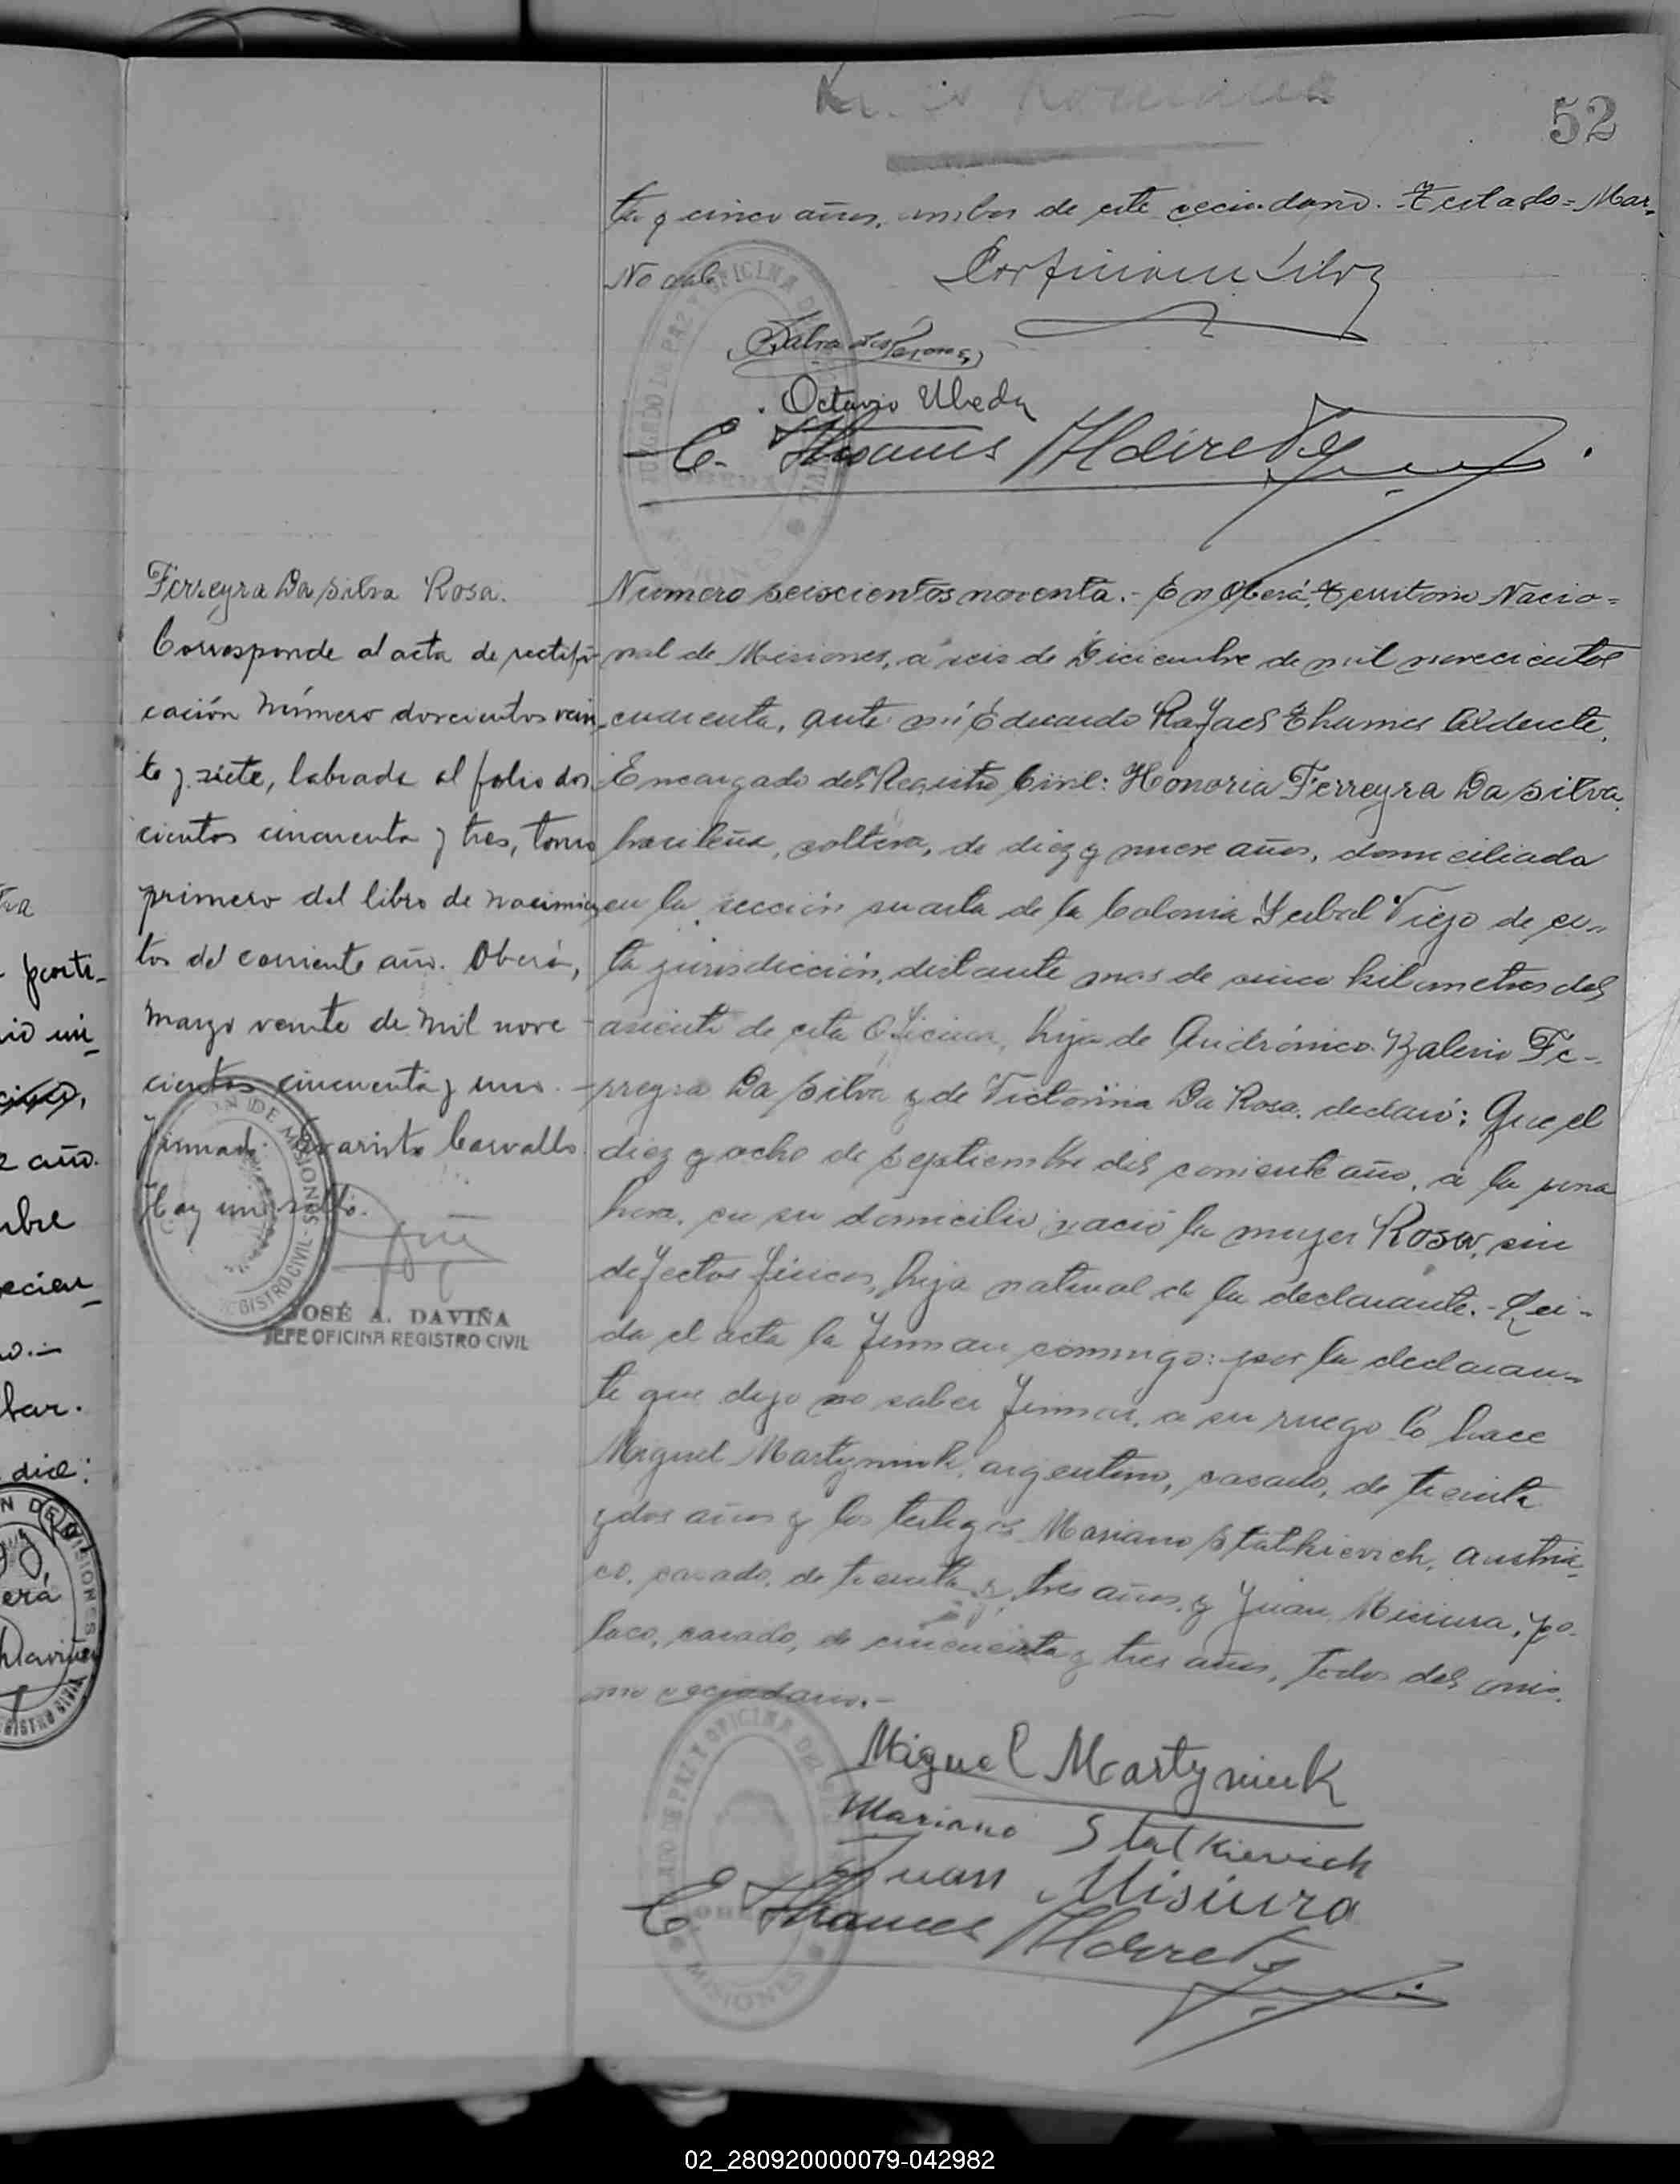 52
ta y cinco años, ambos de este vecindario. Testado = Mar-
No vale
Octavio Ubeda
E. Thames Alderete
Ferreyra Da Silva Rosa.
Corresponde al acta de rectifi-
cación número doscientos vein
te y siete, labrada al folio dos
cientos cincuenta y tres, tomo
primero del libro de nacimien
tos del corriente año. Oberá,
marzo veinte de mil nove
cientos cincuenta y uno.-
Firmado: Evaristo Carvallo
Hay un sello.
JOSÉ A. DAVIÑA
JEFE OFICINA REGISTRO CIVIL
Numero seiscientos noventa.- En Oberá, Territorio Nacio=
nal de Misiones, á seis de Diciembre de mil novecientos
cuarenta, ante mí Eduardo Rafael Thames Alderete,
Encargado del Registro Civil: Honoria Ferreyra Da Silva,
brasileña, soltera, de diez y nueve años, domiciliada
en la sección cuarta de la Colonia Yerbal Viejo de es-
ta jurisdicción, distante mas de cinco kilometros del
asiento de esta Oficina, hija de Andrónico Balerio Fe-
rreyra Da Silva y de Victorina Da Rosa, declaró: Que el
diez y ocho de Septiembre del corriente año, a la una
hora, en su domicilio nació la mujer Rosa, sin
defectos físicos, hija natural de la declarante.- Lei-
da el acta la firman conmigo: por la declaran-
te que dijo no saber firmar, a su ruego lo hace
Miguel Martyniuk, argentino, casado, de treinta
y dos años y los testigos Mariano Stalkievich, austria-
co, casado, de treinta y tres años, y Juan Misiura, po-
laco, casado, de cincuenta y tres años, todos del mis-
mo vecindario.-
Miguel Martyniuk
Mariano Stalkievich
Juan Misiura
E. Thames Alderete
02_280920000079-042982